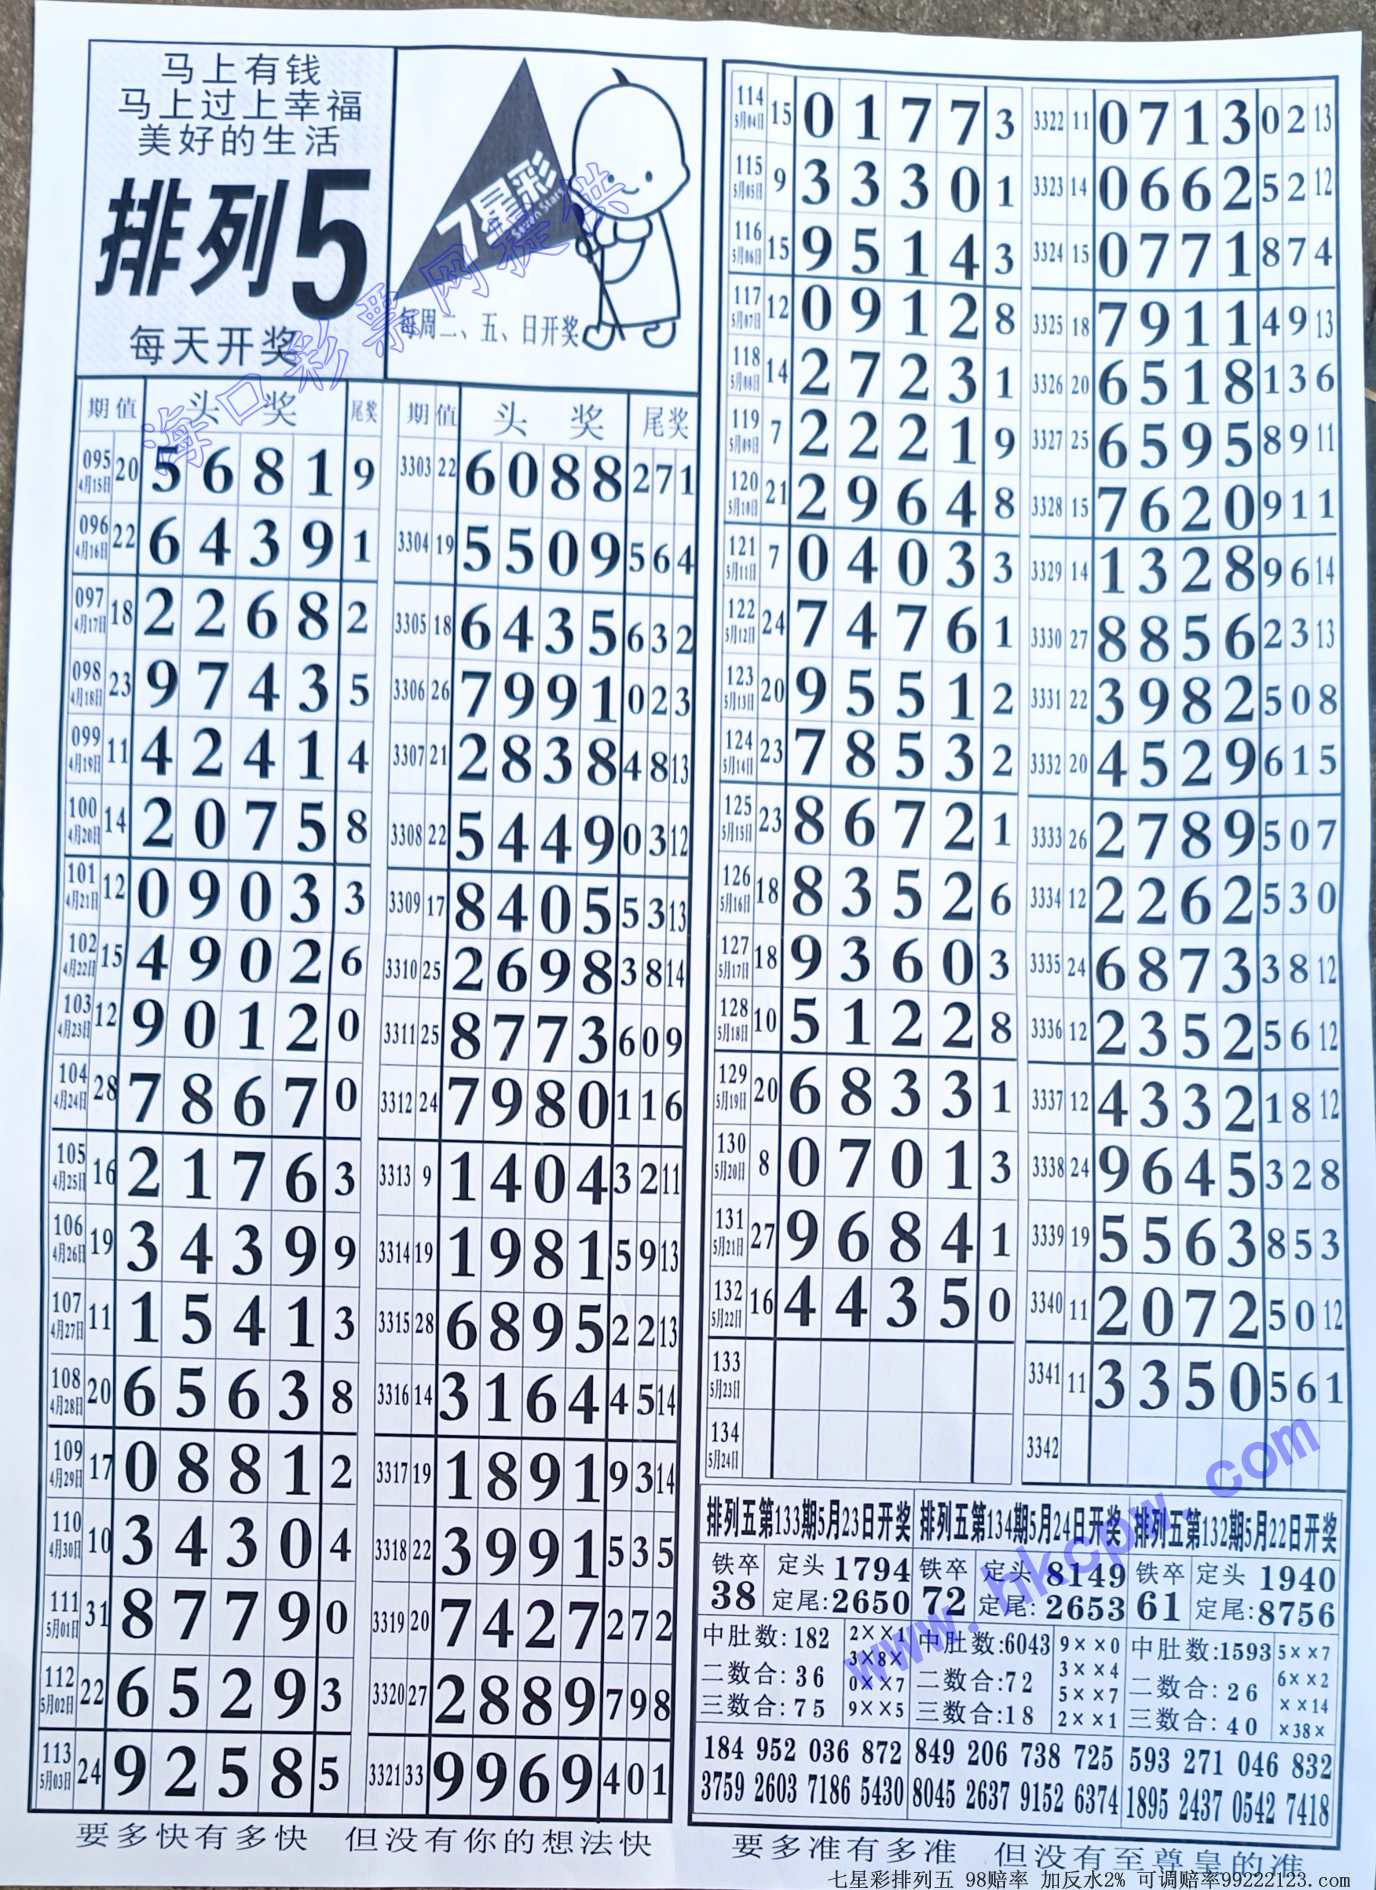 马上有钱
马上过上幸福
美好的生活
排列5
每天开奖
7星彩
Seven Stars
每周二、五、日开奖
海口彩票网提供
期 值 头 奖 尾奖
095 4月15日 20 5 6 8 1 9
096 4月16日 22 6 4 3 9 1
097 4月17日 18 2 2 6 8 2
098 4月18日 23 9 7 4 3 5
099 4月19日 11 4 2 4 1 4
100 4月20日 14 2 0 7 5 8
101 4月21日 12 0 9 0 3 3
102 4月22日 15 4 9 0 2 6
103 4月23日 12 9 0 1 2 0
104 4月24日 28 7 8 6 7 0
105 4月25日 16 2 1 7 6 3
106 4月26日 19 3 4 3 9 9
107 4月27日 11 1 5 4 1 3
108 4月28日 20 6 5 6 3 8
109 4月29日 17 0 8 8 1 2
110 4月30日 10 3 4 3 0 4
111 5月01日 31 8 7 7 9 0
112 5月02日 22 6 5 2 9 3
113 5月03日 24 9 2 5 8 5
期 值 头 奖 尾奖
3303 22 6 0 8 8 2 7 1
3304 19 5 5 0 9 5 6 4
3305 18 6 4 3 5 6 3 2
3306 26 7 9 9 1 0 2 3
3307 21 2 8 3 8 4 8 13
3308 22 5 4 4 9 0 3 12
3309 17 8 4 0 5 5 3 13
3310 25 2 6 9 8 3 8 14
3311 25 8 7 7 3 6 0 9
3312 24 7 9 8 0 1 1 6
3313 9 1 4 0 4 3 2 11
3314 19 1 9 8 1 5 9 13
3315 28 6 8 9 5 2 2 13
3316 14 3 1 6 4 4 5 14
3317 19 1 8 9 1 9 3 14
3318 22 3 9 9 1 5 3 5
3319 20 7 4 2 7 2 7 2
3320 27 2 8 8 9 7 9 8
3321 33 9 9 6 9 4 0 1
要多快有多快 但没有你的想法快
114 5月04日 15 0 1 7 7 3
115 5月05日 9 3 3 3 0 1
116 5月06日 15 9 5 1 4 3
117 5月07日 12 0 9 1 2 8
118 5月08日 14 2 7 2 3 1
119 5月09日 7 2 2 2 1 9
120 5月10日 21 2 9 6 4 8
121 5月11日 7 0 4 0 3 3
122 5月12日 24 7 4 7 6 1
123 5月13日 20 9 5 5 1 2
124 5月14日 23 7 8 5 3 2
125 5月15日 23 8 6 7 2 1
126 5月16日 18 8 3 5 2 6
127 5月17日 18 9 3 6 0 3
128 5月18日 10 5 1 2 2 8
129 5月19日 20 6 8 3 3 1
130 5月20日 8 0 7 0 1 3
131 5月21日 27 9 6 8 4 1
132 5月22日 16 4 4 3 5 0
133 5月23日
134 5月24日
3322 11 0 7 1 3 0 2 13
3323 14 0 6 6 2 5 2 12
3324 15 0 7 7 1 8 7 4
3325 18 7 9 1 1 4 9 13
3326 20 6 5 1 8 1 3 6
3327 25 6 5 9 5 8 9 11
3328 15 7 6 2 0 9 1 1
3329 14 1 3 2 8 9 6 14
3330 27 8 8 5 6 2 3 13
3331 22 3 9 8 2 5 0 8
3332 20 4 5 2 9 6 1 5
3333 26 2 7 8 9 5 0 7
3334 12 2 2 6 2 5 3 0
3335 24 6 8 7 3 3 8 12
3336 12 2 3 5 2 5 6 12
3337 12 4 3 3 2 1 8 12
3338 24 9 6 4 5 3 2 8
3339 19 5 5 6 3 8 5 3
3340 11 2 0 7 2 5 0 12
3341 11 3 3 5 0 5 6 1
3342
排列五第133期5月23日开奖
铁卒 38
定头 1794
定尾:2650
中肚数:182
二数合:36
三数合:75
2××1
3×8×
0××7
9××5
184 952 036 872
3759 2603 7186 5430
排列五第134期5月24日开奖
铁卒 72
定头 8149
定尾:2653
中肚数:6043
二数合:72
三数合:18
9××0
3××4
5××7
2××1
849 206 738 725
8045 2637 9152 6374
排列五第132期5月22日开奖
铁卒 61
定头 1940
定尾:8756
中肚数:1593
二数合:26
三数合:40
5××7
6××2
××14
×38×
593 271 046 832
1895 2437 0542 7418
要多准有多准 但没有至尊皇的准
www.hkcpw.com
七星彩排列五 98赔率 加反水2% 可调赔率99222123.com